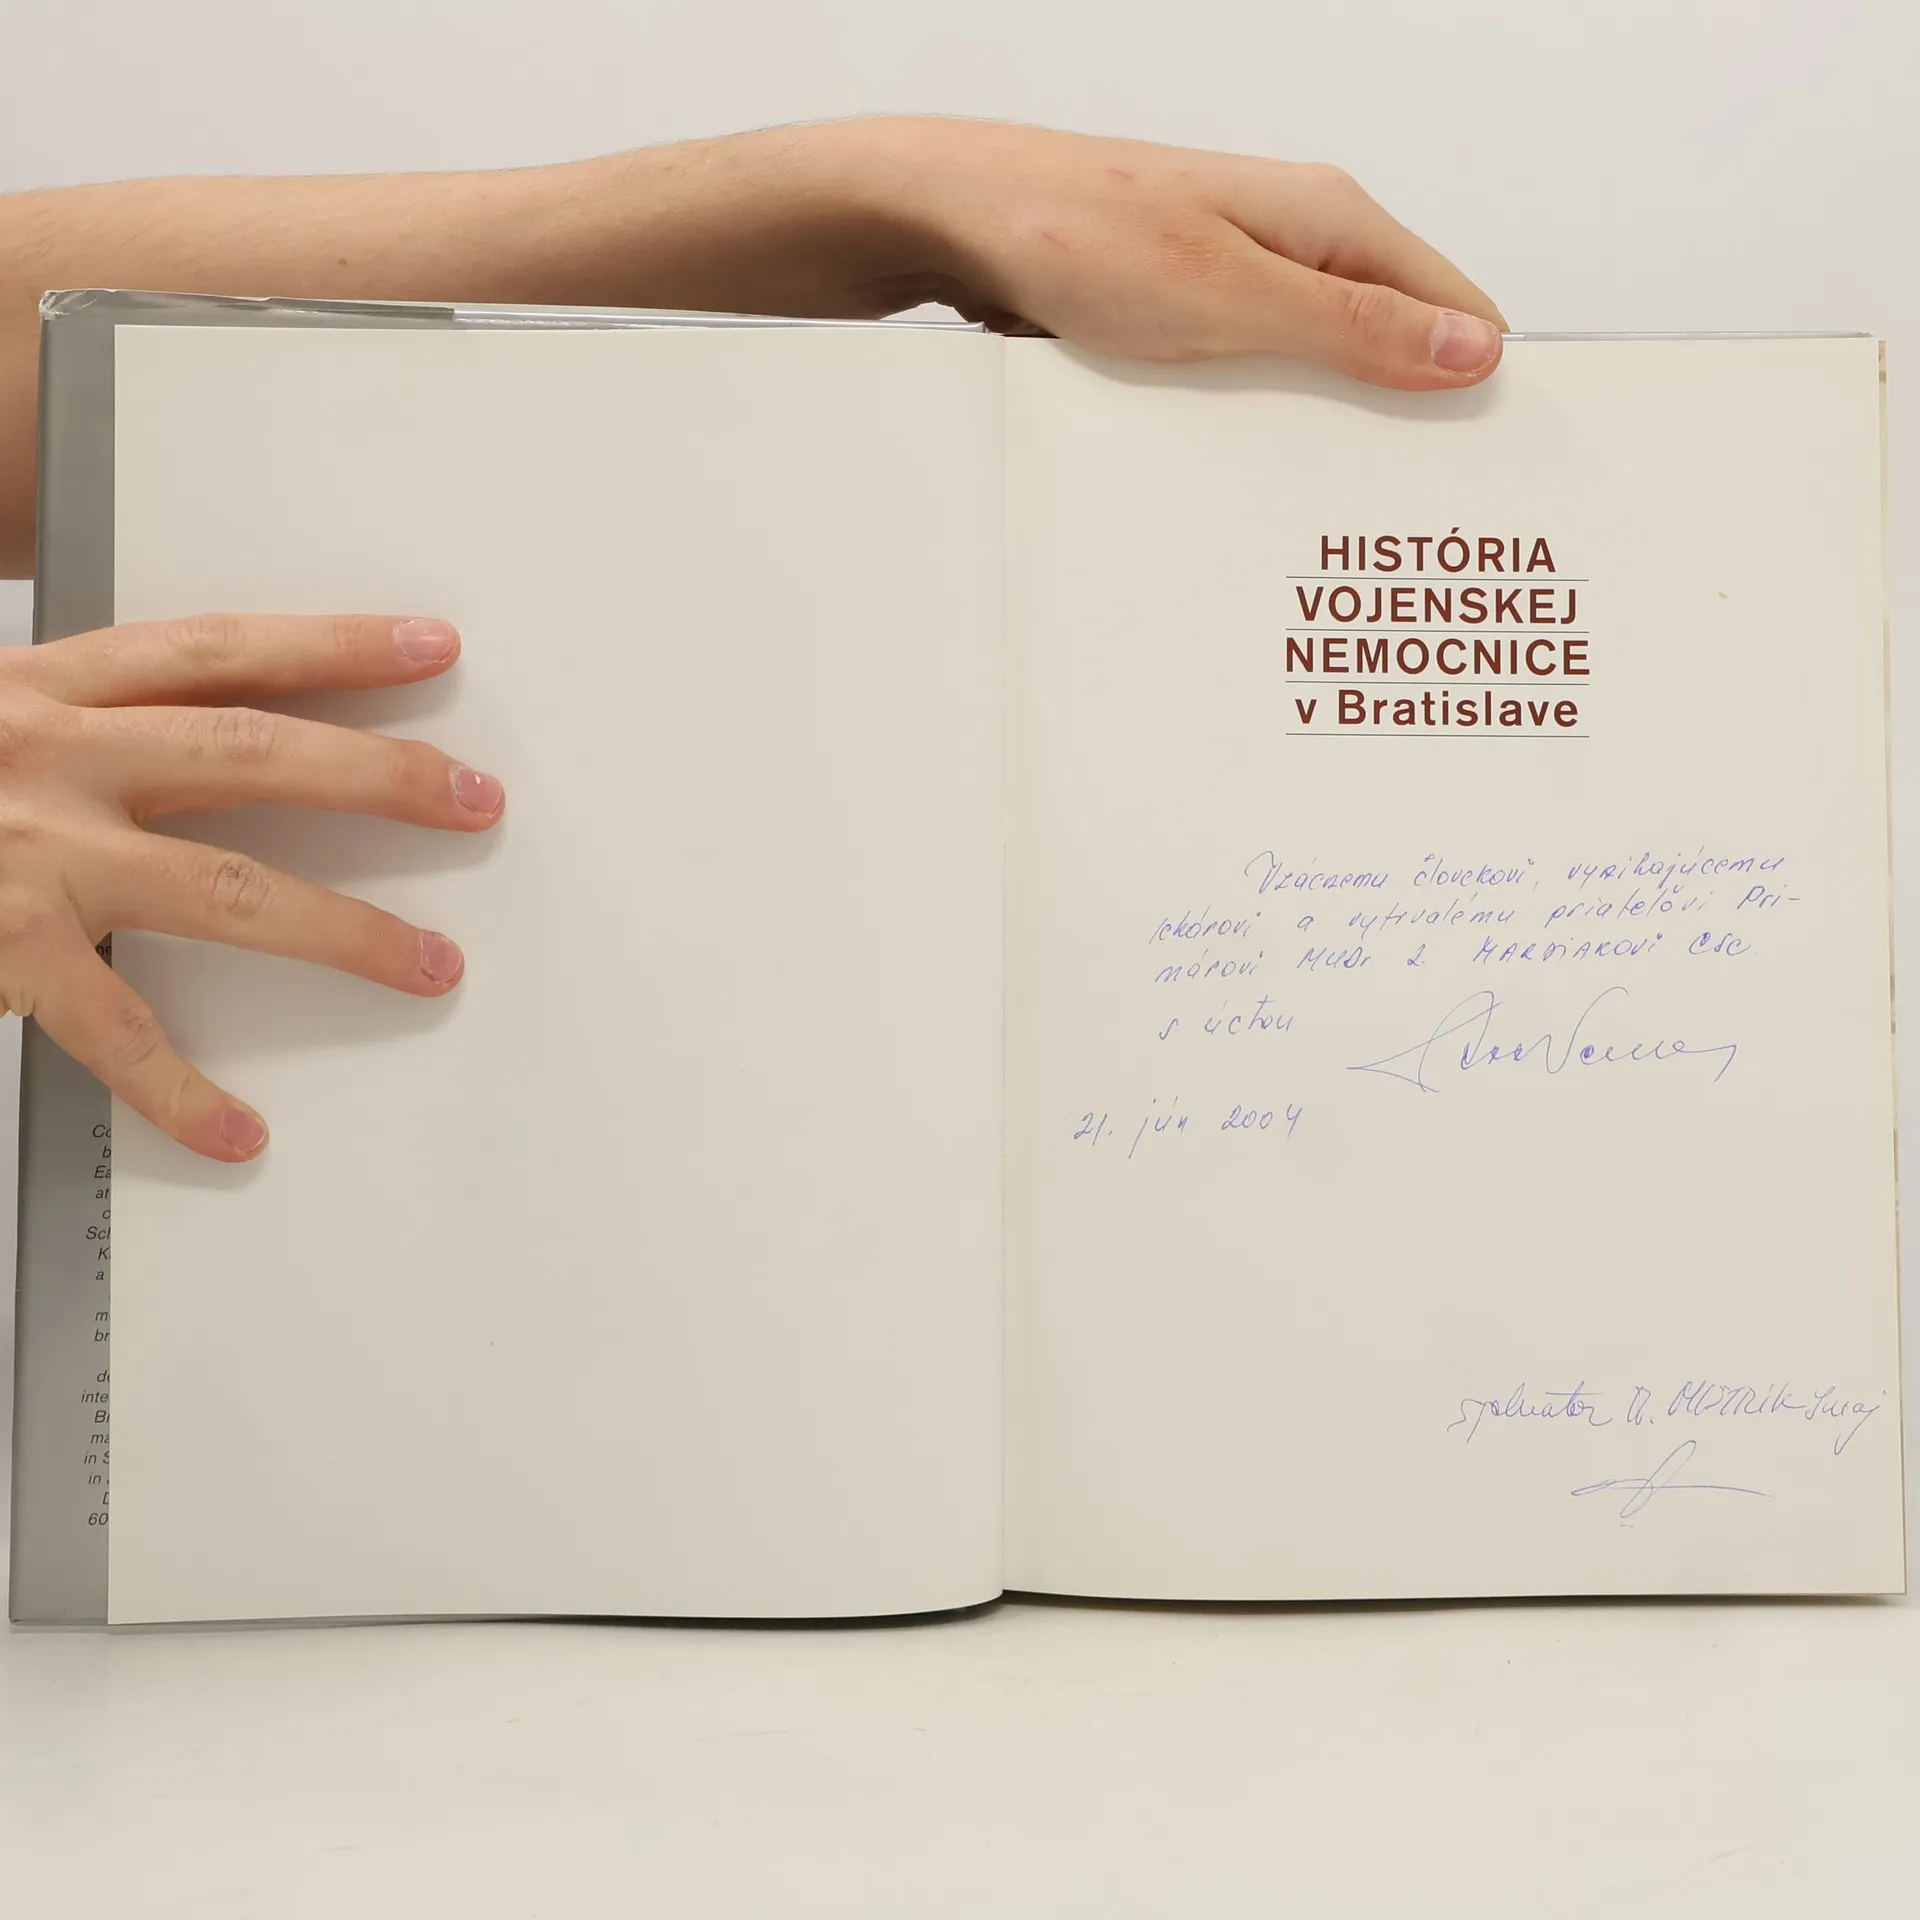 ne
Co
b
Ea
at
c
Sch
K
a
m
br
de
inte
Br
ma
in S
in
D
60
HISTÓRIA
VOJENSKEJ
NEMOCNICE
v Bratislave
Vzácnemu človekovi, vynikajúcemu
lekárovi a vytrvalému priateľovi Pri-
márovi MUDr CSc
s úctou
21. jún 2004